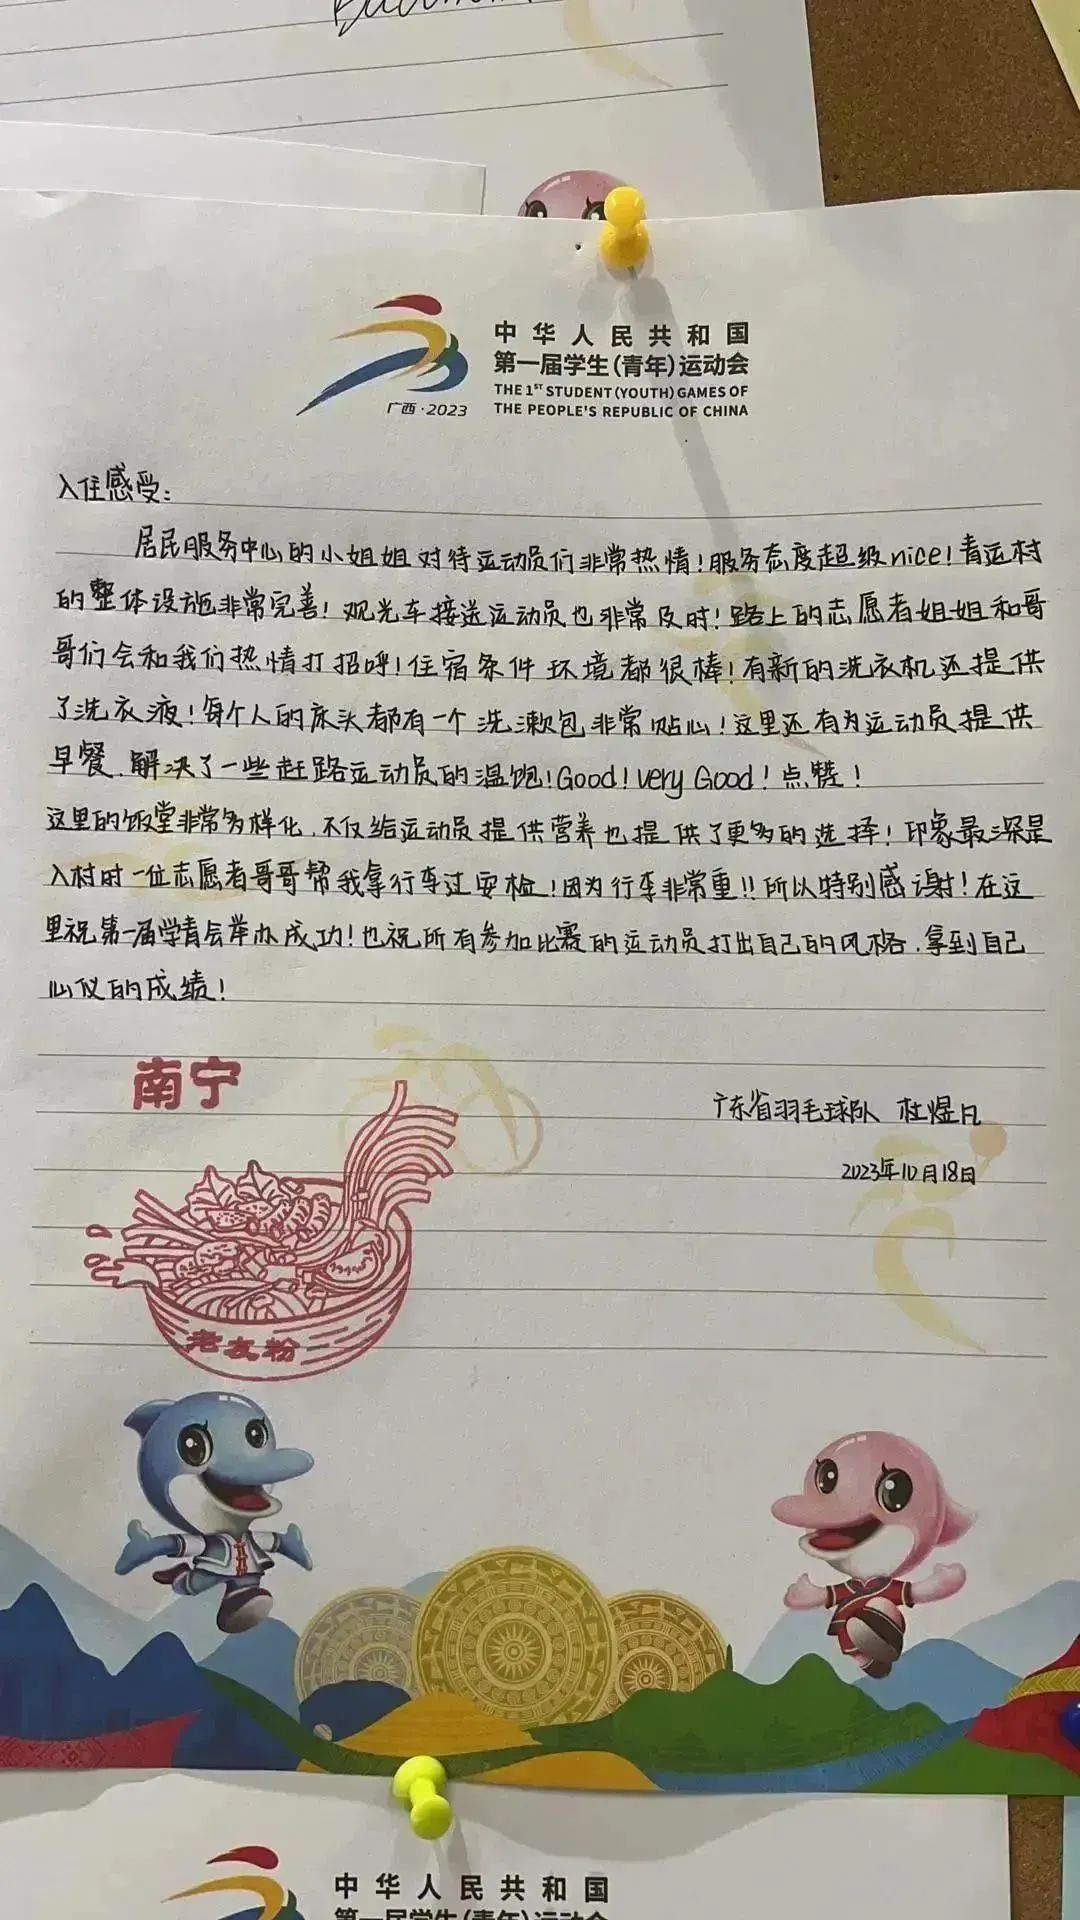 中华人民共和国
第一届学生(青年)运动会
THE 1ST STUDENT (YOUTH) GAMES OF
THE PEOPLE'S REPUBLIC OF CHINA
广西·2023
入住感受：
居民服务中心的小姐姐对待运动员们非常热情！服务态度超级nice！青运村
的整体设施非常完善！观光车接送运动员也非常及时！路上的志愿者姐姐和哥
哥们会和我们热情打招呼！住宿条件环境都很棒！有新的洗衣机还提供
了洗衣液！每个人的床头都有一个洗漱包非常贴心！这里还有为运动员提供
早餐，解决了一些赶路运动员的温饱！Good！very Good！点赞！
这里的饭堂非常多样化，不仅给运动员提供营养也提供了更多的选择！印象最深是
入村时一位志愿者哥哥帮我拿行李过安检！因为行李非常重！！所以特别感谢！在这
里祝第一届学青会举办成功！也祝所有参加比赛的运动员打出自己的风格，拿到自己
心仪的成绩！
南宁
广东省羽毛球队 杜煜凡
2023年10月18日
老友粉
中华人民共和国
第一届学生(青年)运动会